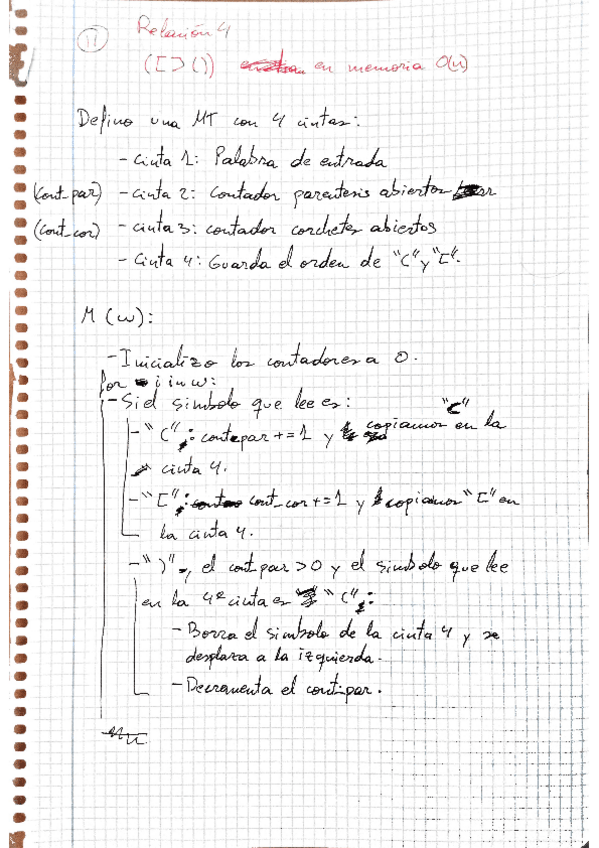 11 Relación 4
([]()) en memoria O(n)
Defino una MT con 4 cintas:
- Cinta 1: Palabra de entrada
(cont_par) - Cinta 2: Contador parentesis abiertos
(cont_cor) - cinta 3: contador corchetes abiertos
- Cinta 4: Guarda el orden de "(" y "[".
M(w):
- Inicializo los contadores a 0.
for i in w:
- Si el simbolo que lee es:
- "(": contpar += 1 y copiamos "(" en la
cinta 4.
- "[": cont_cor += 1 y copiamos "[" en
la cinta 4.
- ")", el contpar > 0 y el simbolo que lee
en la 4ª cinta es "(":
- Borra el simbolo de la cinta 4 y se
desplaza a la izquierda.
- Decrementa el contpar.